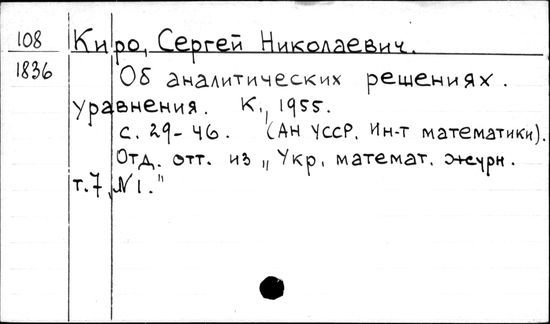 108 Киро, Сергей Николаевич.
1836 Об аналитических решениях.
уравнения. К., 1955.
с. 29-46. (АН УССР. Ин-т математики).
Отд. отт. из „Укр. математ. журн.
т.7, №1."